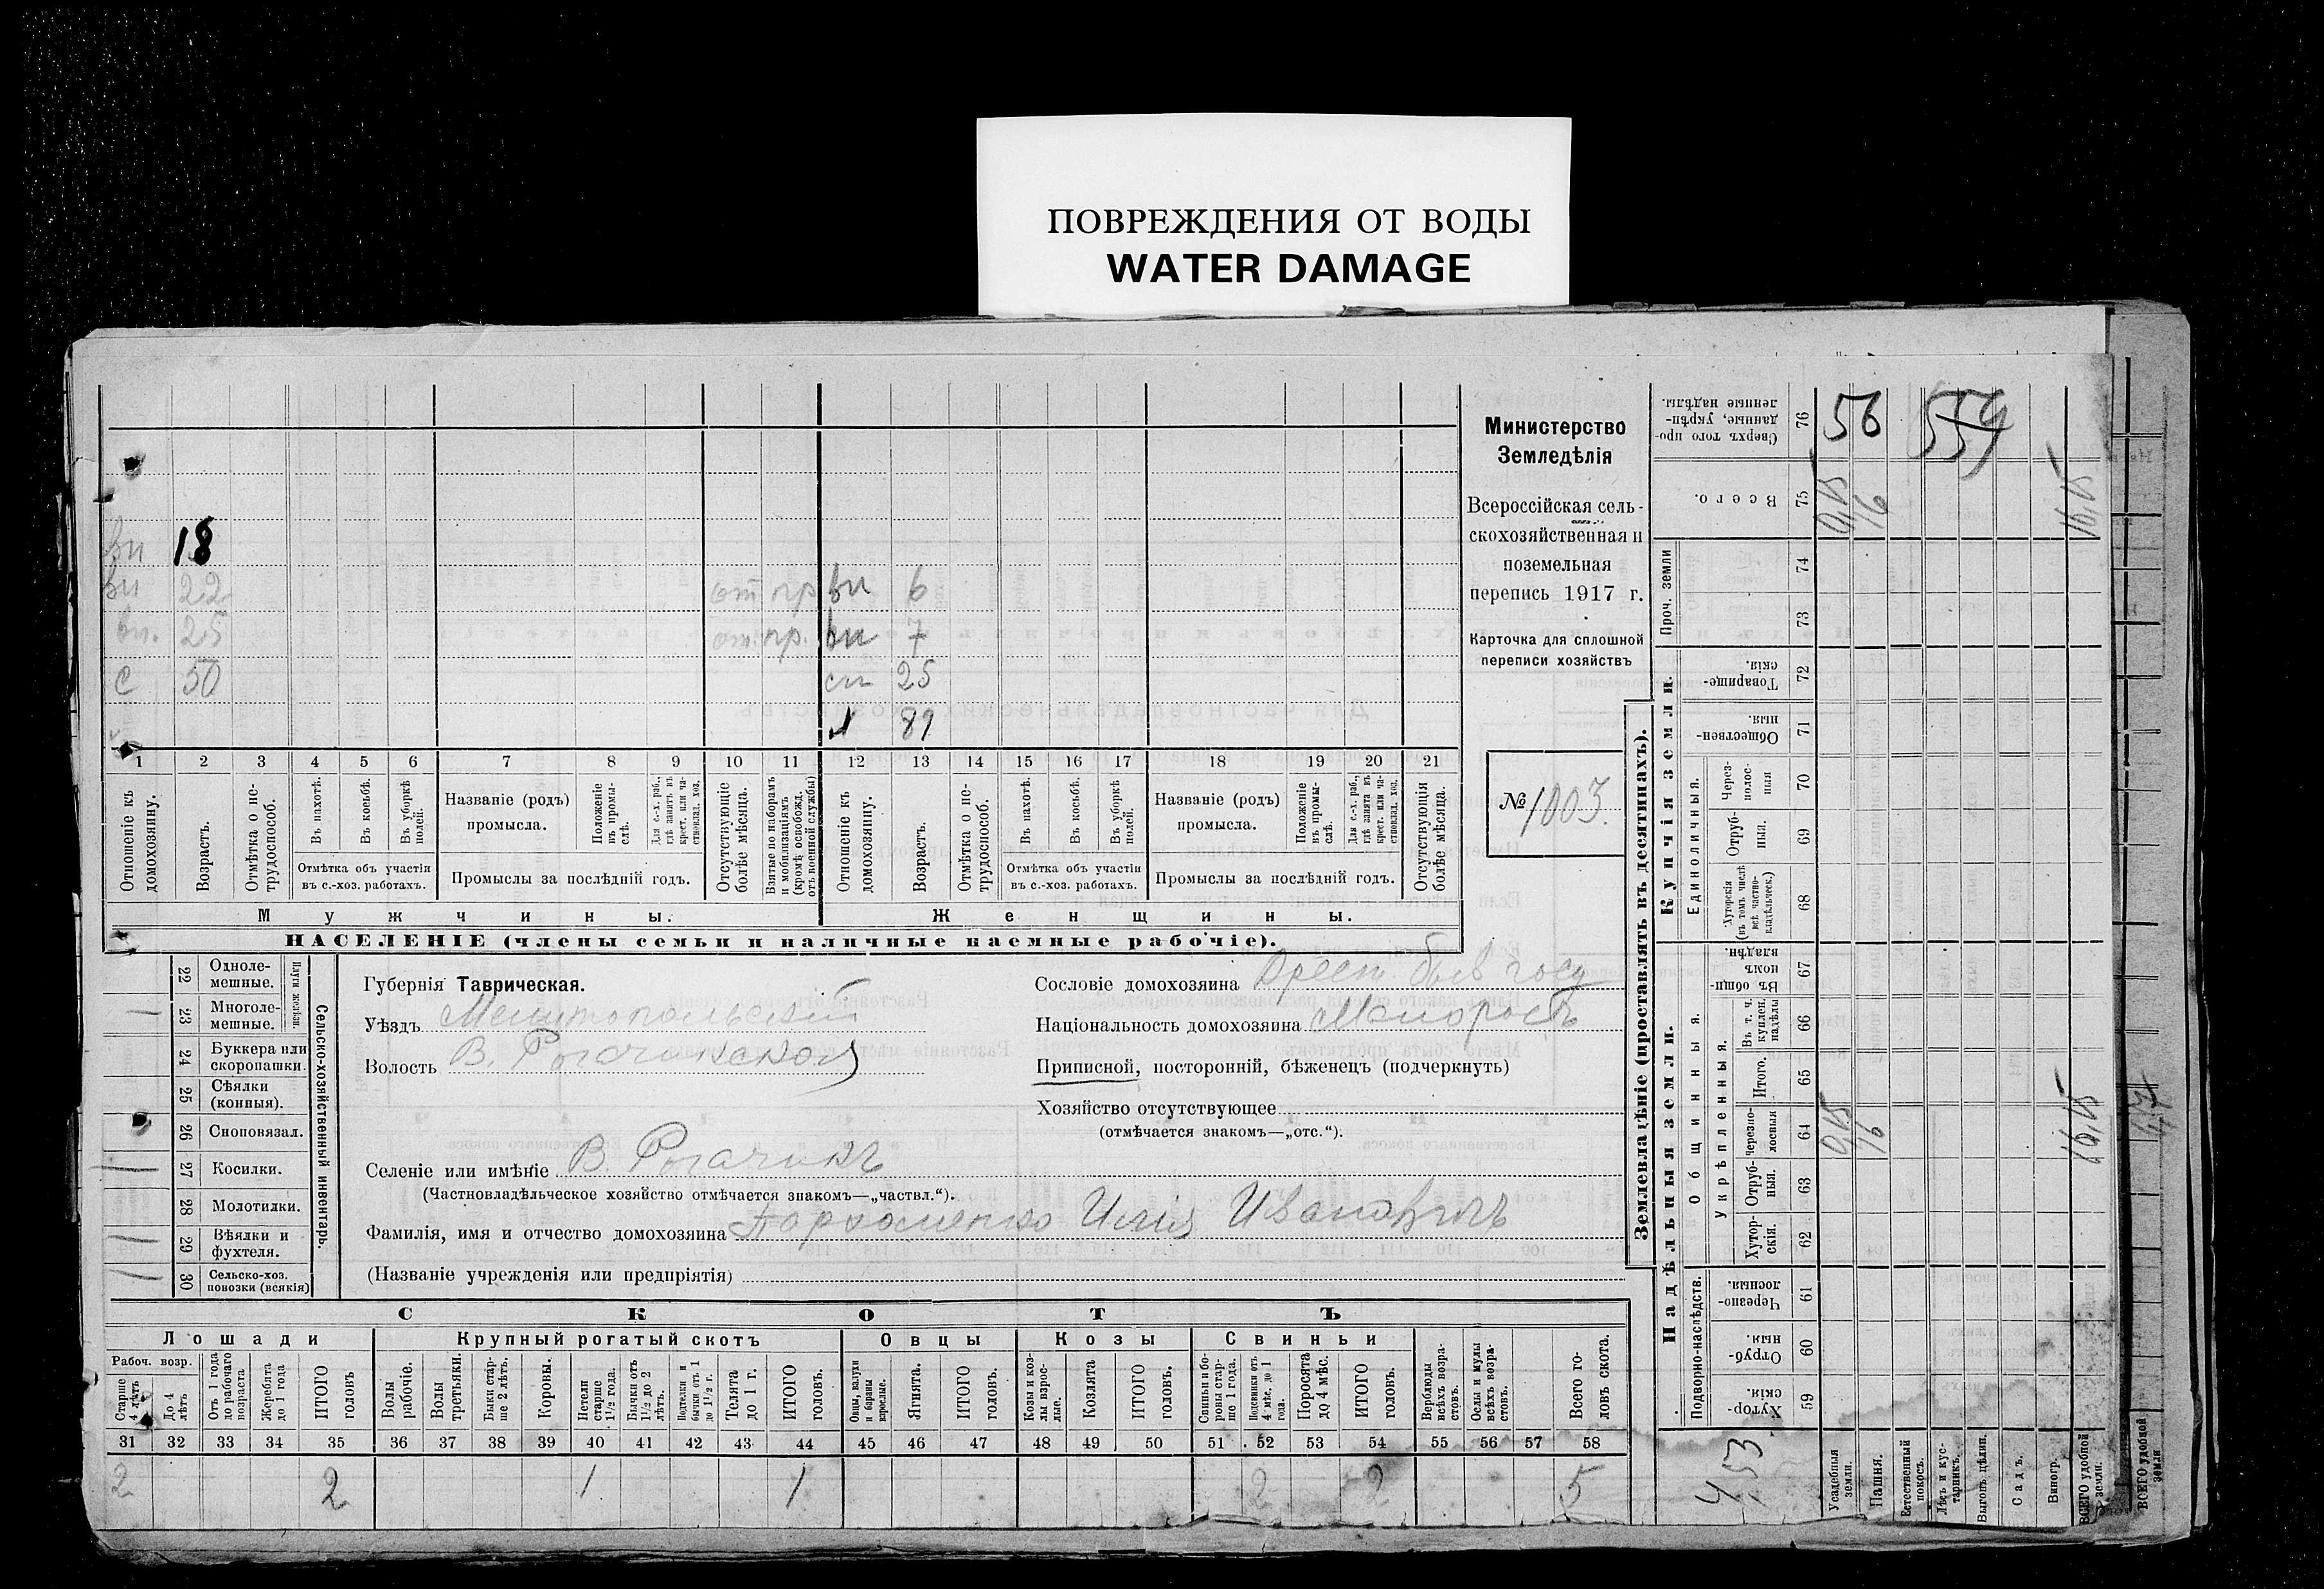 ПОВРЕЖДЕНИЯ ОТ ВОДЫ
WATER DAMAGE
вн 18
вн 22 от пр вн 6
вн. 25 от. пр. вн 7
с 50 сн 25
89
1 2 3 4 5 6 7 8 9 10 11 12 13 14 15 16 17 18 19 20 21
Отношеніе къ домохозяину.
Возрастъ.
Отмѣтка о не-трудоспособ.
Въ пахотѣ.
Въ косьбѣ.
Въ уборкѣ полей.
Отмѣтка объ участіи
въ с.-хоз. работахъ.
Названіе (родъ)
промысла.
Положеніе въ промы-слѣ.
Для с.-х. раб., гдѣ занятъ въ крест. или ча-стновлад. хоз.
Промыслы за послѣдній годъ.
Отсутствующіе болѣе мѣсяца.
Взятые по наборамъ и мобилизаціямъ (кромѣ освобожд. отъ военной службы)
Отношеніе къ домохозяину.
Возрастъ.
Отмѣтка о не-трудоспособ.
Въ пахотѣ.
Въ косьбѣ.
Въ уборкѣ полей.
Отмѣтка объ участіи
въ с.-хоз. работахъ.
Названіе (родъ)
промысла.
Положеніе въ промы-слѣ.
Для с.-х. раб., гдѣ занята въ крест. или ча-стновлад. хоз.
Промыслы за послѣдній годъ.
Отсутствующія болѣе мѣсяца.
Мужчины.
Женщины.
НАСЕЛЕНІЕ (члены семьи и наличные наемные рабочіе).
Министерство
Земледѣлія
Всероссійская сель-
скохозяйственная и
поземельная
перепись 1917 г.
Карточка для сплошной
переписи хозяйствъ
№ 1003.
22 Одноле-мешные.
23 Многоле-мешные.
Плуги желѣзн.
24 Буккера или скоропашки.
25 Сѣялки (конныя).
26 Сноповязал.
27 Косилки.
28 Молотилки.
29 Вѣялки и фухтеля.
30 Сельско-хоз. повозки (всякія)
Сельско-хозяйственный инвентарь.
Губернія Таврическая.
Уѣздъ Мелитопольскій
Волость В. Рогачикской
Селеніе или имѣніе В. Рогачикъ
(Частновладѣльческое хозяйство отмѣчается знакомъ—„частвл.“).
Фамилія, имя и отчество домохозяина Пархоменко Илія Ивановичъ
(Названіе учрежденія или предпріятія)
Сословіе домохозяина Крест. быв госу
Національность домохозяина Малоросъ
Приписной, посторонній, бѣженецъ (подчеркнуть)
Хозяйство отсутствующее
(отмѣчается знакомъ—„отс.“).
СКОТЪ
Лошади
Крупный рогатый скотъ
Овцы
Козы
Свиньи
Рабоч. возр.
Старше 4 лѣтъ
До 4 лѣтъ
Отъ 1 года до рабочаго возраста
Жеребята до 1 года
ИТОГО головъ
Волы рабочіе.
Волы третьяки.
Быки стар-ше 2 лѣтъ.
Коровы.
Нетели старше 1½ года.
Бычки отъ 1½ до 2 лѣтъ.
Подтелки и бычки отъ 1 до 1½ г.
Телята до 1 г.
ИТОГО головъ.
Овцы, валухи и бараны взрослые.
Ягнята.
ИТОГО головъ.
Козы и коз-лы взрос-лые.
Козлята
ИТОГО головъ.
Свиньи и бо-ровы стар-ше 1 года.
Подсвинки отъ 4 мѣс. до 1 года.
Поросята до 4 мѣс.
ИТОГО головъ.
Верблюды всѣхъ возра-стовъ.
Ослы и мулы всѣхъ возра-стовъ.
Всего го-ловъ скота.
31 32 33 34 35 36 37 38 39 40 41 42 43 44 45 46 47 48 49 50 51 52 53 54 55 56 57 58
2 2 1 1 2 2 5
Землевладѣніе (проставлять въ десятинахъ).
Надѣльныя земли.
Купчія земли.
Проч. земли
Подворно-наслѣдств.
Общинныя.
Укрѣпленныя.
Единоличныя.
Сверхъ того про-данные, укрѣп-ленные надѣлы. 76 56 559
Всего. 75 0,15 16 16,15
74
73
Товарище-скія. 72
Обществен-ныя. 71
Через-полос-ныя 70
Отруб-ныя. 69
Хуторскія (въ томъ числѣ всѣ частно-владѣльческ.) 68
Въ общи-номъ владѣн. 67
Въ т. ч. куплен. надѣлы 66
Итого. 65
Черезпо-лосныя 64 0,15 16 16,15
Отруб-ныя. 63
Хутор-скія. 62
Черезпо-лосныя. 61
Отруб-ныя. 60
Хутор-скія. 59
453
Усадебныя земли.
Пашня.
Естественный покосъ.
Лѣсъ и кус-тарникъ.
Выгонъ цѣлин.
Садъ.
Виногр.
ВСЕГО удобной земли.
ВСЕГО удобной земли